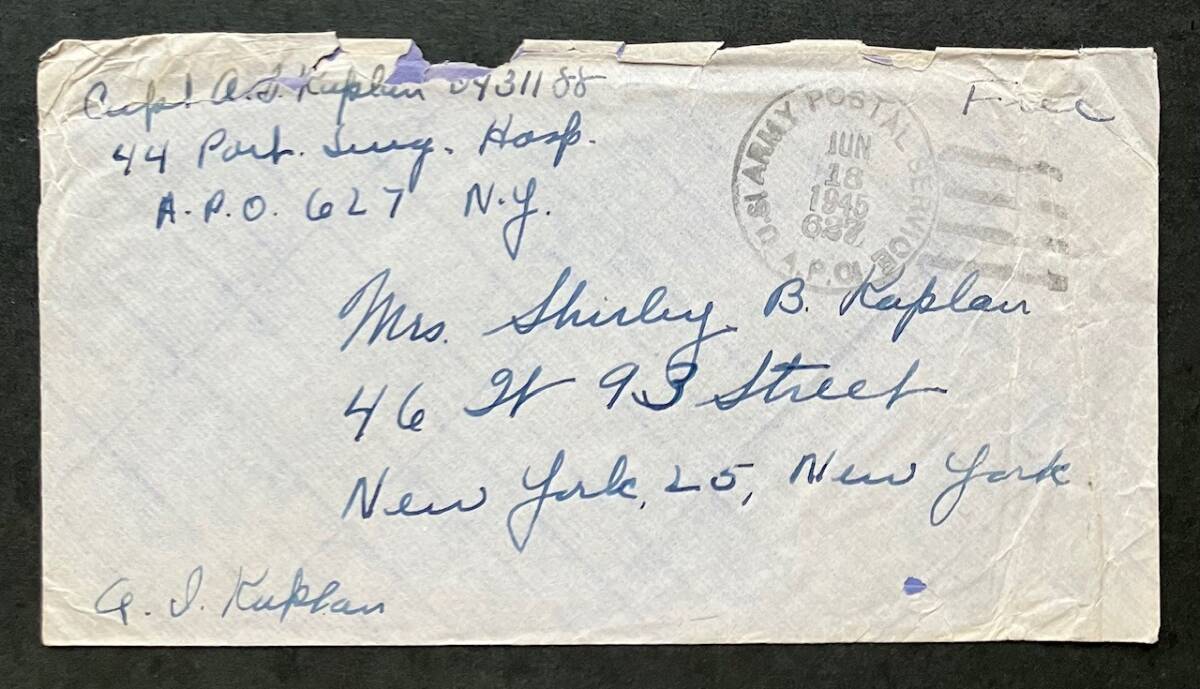 Capt A. I. Kaplan 0431188
44 Port. Surg. Hosp.
A.P.O. 627 N.Y.
Free
U.S. ARMY POSTAL SERVICE
JUN
18
1945
627
A.P.O.
Mrs. Shirley B. Kaplan
46 W 93 Street
New York, 25, New York
A. I. Kaplan